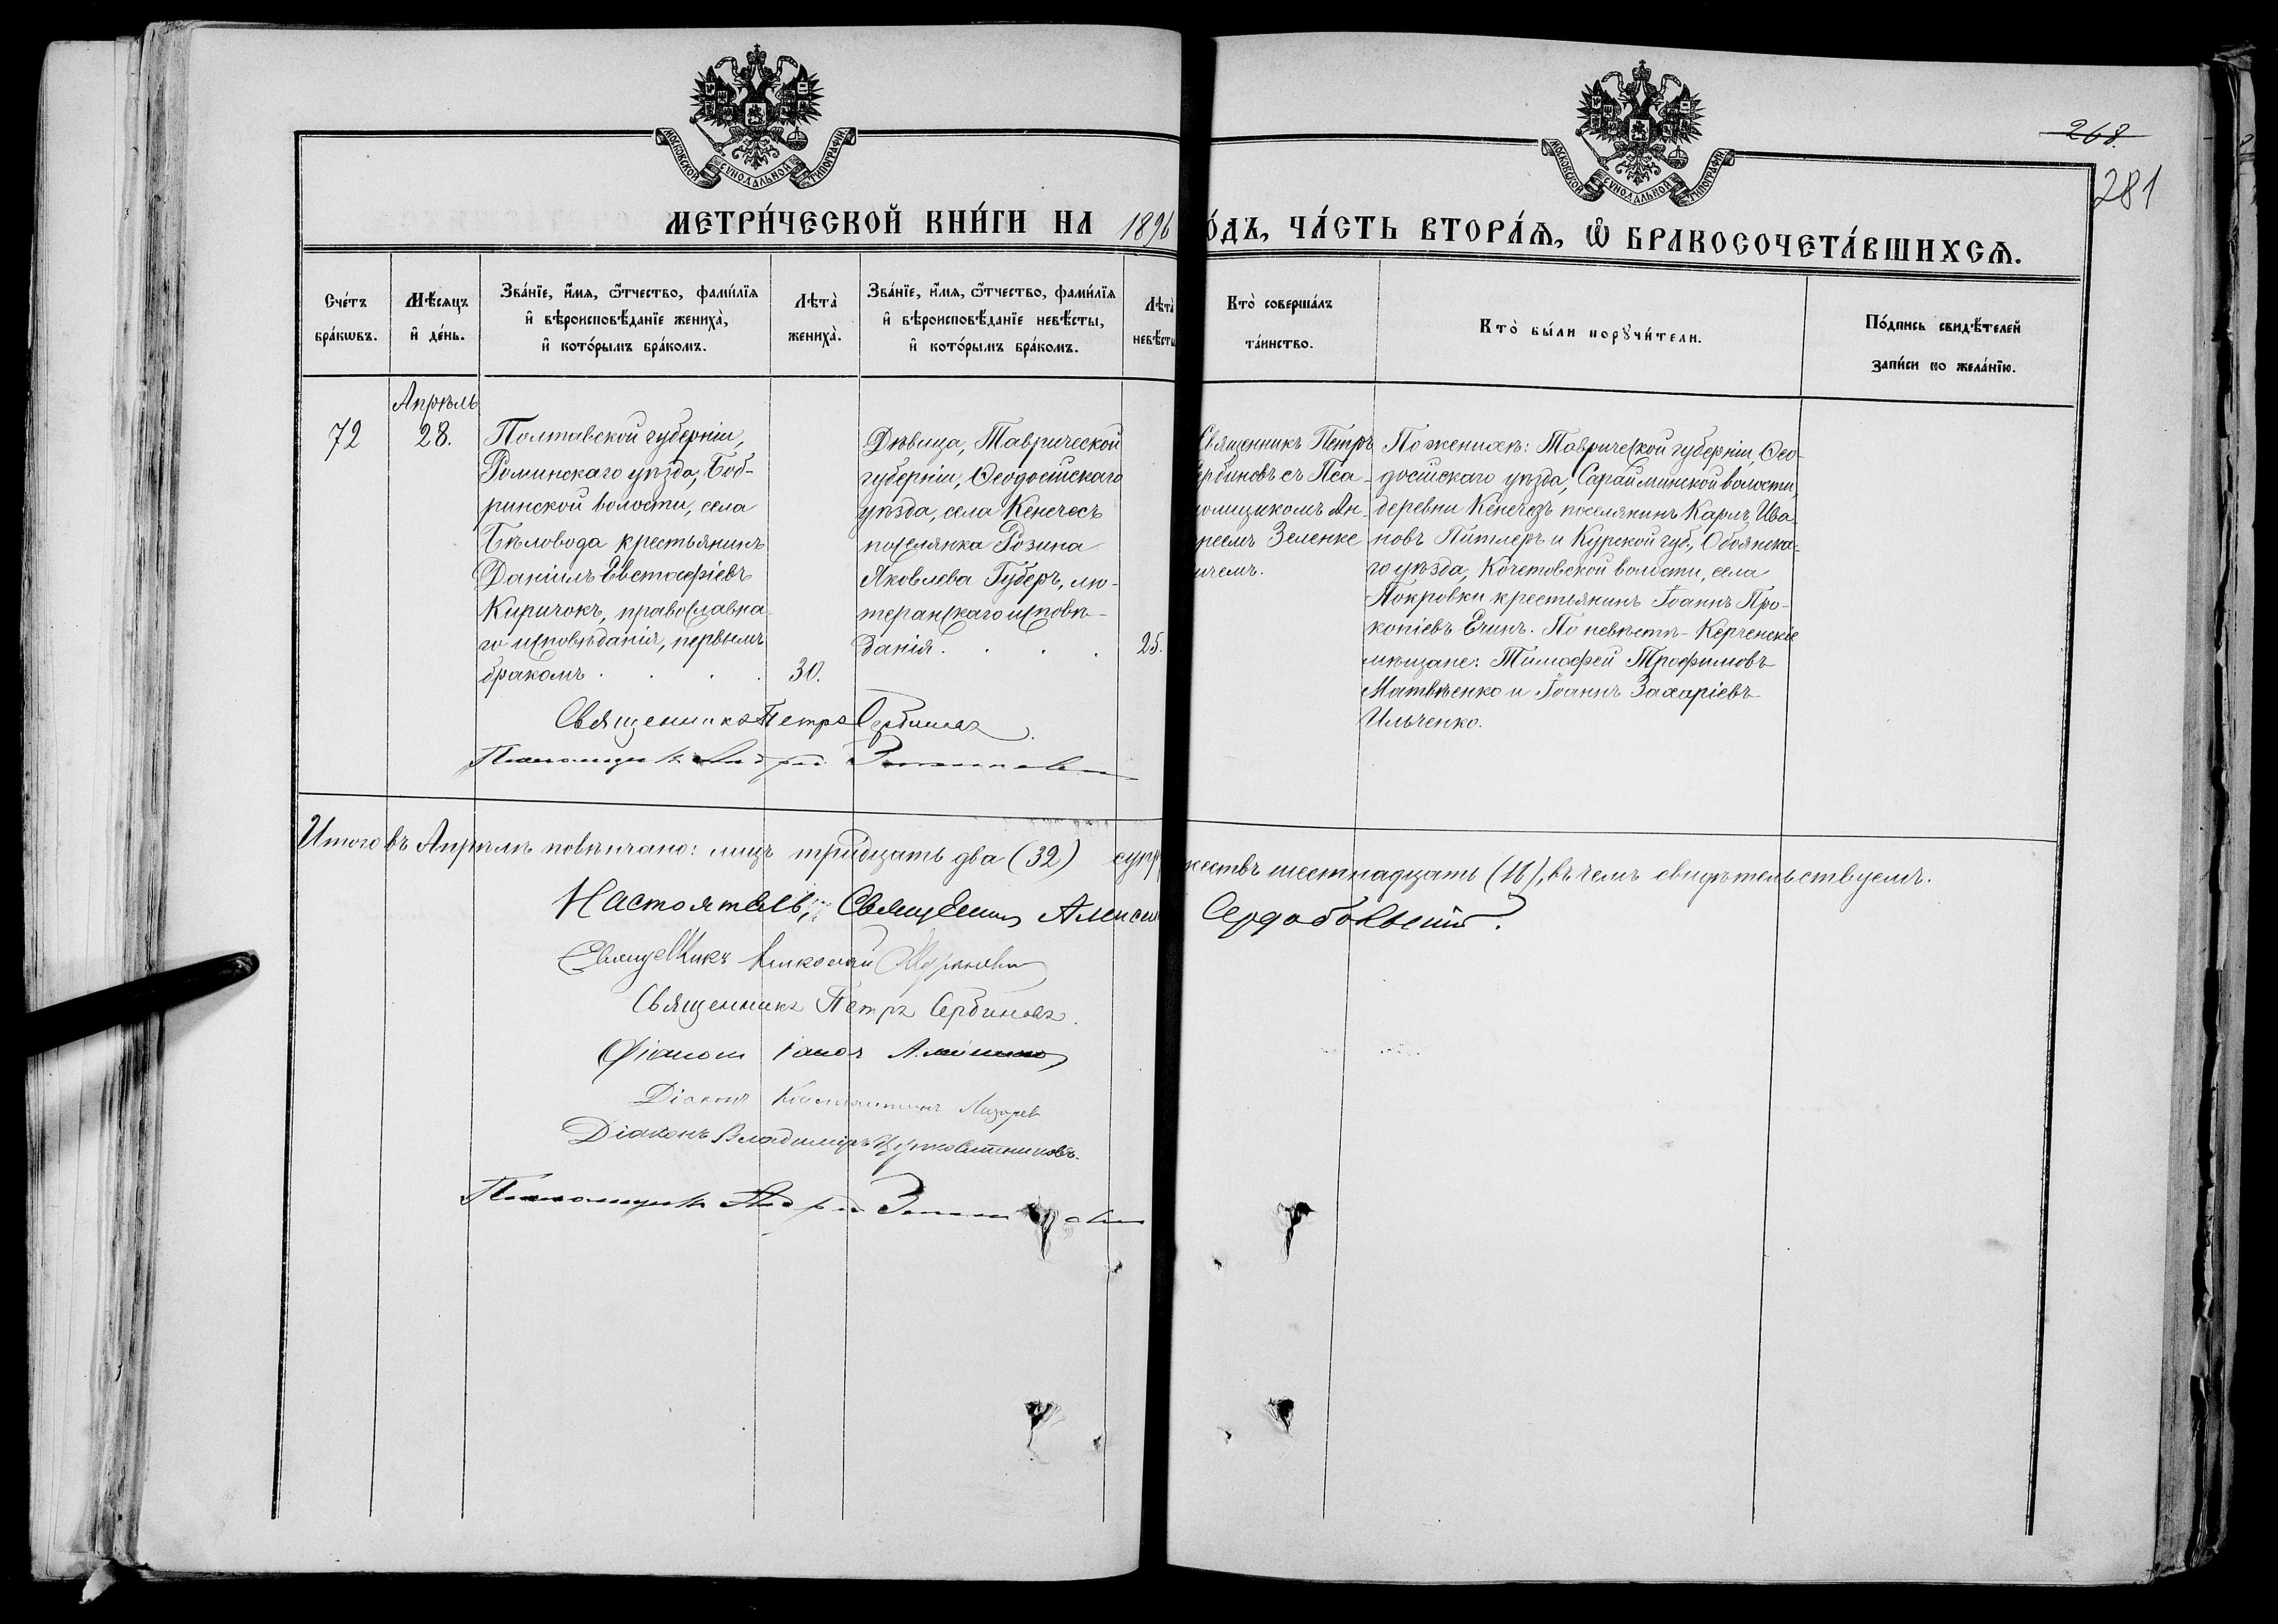 МОСКОВСКОЙ СѴНОДАЛЬНОЙ ТИПОГРАФІИ
МОСКОВСКОЙ СѴНОДАЛЬНОЙ ТИПОГРАФІИ
268.
281
МЕТРИ́ЧЕСКОЙ КНИ́ГИ НА 1896
О́ДЪ, ЧА́СТЬ ВТОРА́Ѧ, Ѽ БРАКОСОЧЕТА́ВШИХСѦ.
Сче́тъ
бра́кѡвъ.
Мѣ́сяцъ
и҆ де́нь.
Зва́нїе, и҆́мя, ѻ҆́тчество, фами́лїя
и҆ вѣроисповѣ́данїе жениха̀,
и҆ кото́рымъ бра́комъ.
Лѣта̀
жениха̀.
Зва́нїе, и҆́мя, ѻ҆́тчество, фами́лїя
и҆ вѣроисповѣ́данїе невѣ́сты,
и҆ кото́рымъ бра́комъ.
Лѣта̀
невѣ́сты
Кто̀ соверша́лъ
та́инство.
Кто̀ бы́ли порꙋчи́тели.
По́дпись свидѣ́телей
за́писи по жела́нїю.
72
Апрѣль
28.
Полтавской губерніи,
Роминскаго уѣзда, Боб-
ринской волости, села
Бѣловода крестьянинъ
Даніилъ Евстафіевъ
Киричокъ, православна-
го исповѣданія, первымъ
бракомъ
30.
Дѣвица, Таврической
губерніи, Ѳеодосійскаго
уѣзда, села Кенегесъ
поселянка Розина
Яковлева Губеръ, лю-
теранскаго исповѣ-
данія.
25.
Священникъ Петръ
Сербиновъ съ Пса-
ломщикомъ Ан-
дреемъ Зеленке
вичемъ.
По женихѣ: Таврической губерніи, Ѳео-
досійскаго уѣзда, Сарайминской волости,
деревни Кенегезъ поселянинъ Карлъ Ива-
новъ Питлеръ и Курской губ., Обоянска-
го уѣзда, Кочетовской волости, села
Покровки крестьянинъ Іоаннъ Про-
копіевъ Ечинъ. По невѣстѣ – Керченскіе
мѣщане: Тимофей Трофимовъ
Матвѣенко и Іоаннъ Захаріевъ
Ильченко.
Священникъ Петръ Сербиновъ.
Псаломщикъ Андрей
Итого въ Апрѣлѣ повѣнчано: лицъ тридцать два (32) супр
жествъ шестнадцать (16), въ чемъ свидѣтельствуемъ.
Настоятель, Священникъ Алексій Сердобольскій.
Священникъ Николай
Священникъ Петръ Сербиновъ.
Діаконъ
Діаконъ Константинъ Лазарев
Діаконъ Владимиръ
Псаломщикъ Андрей